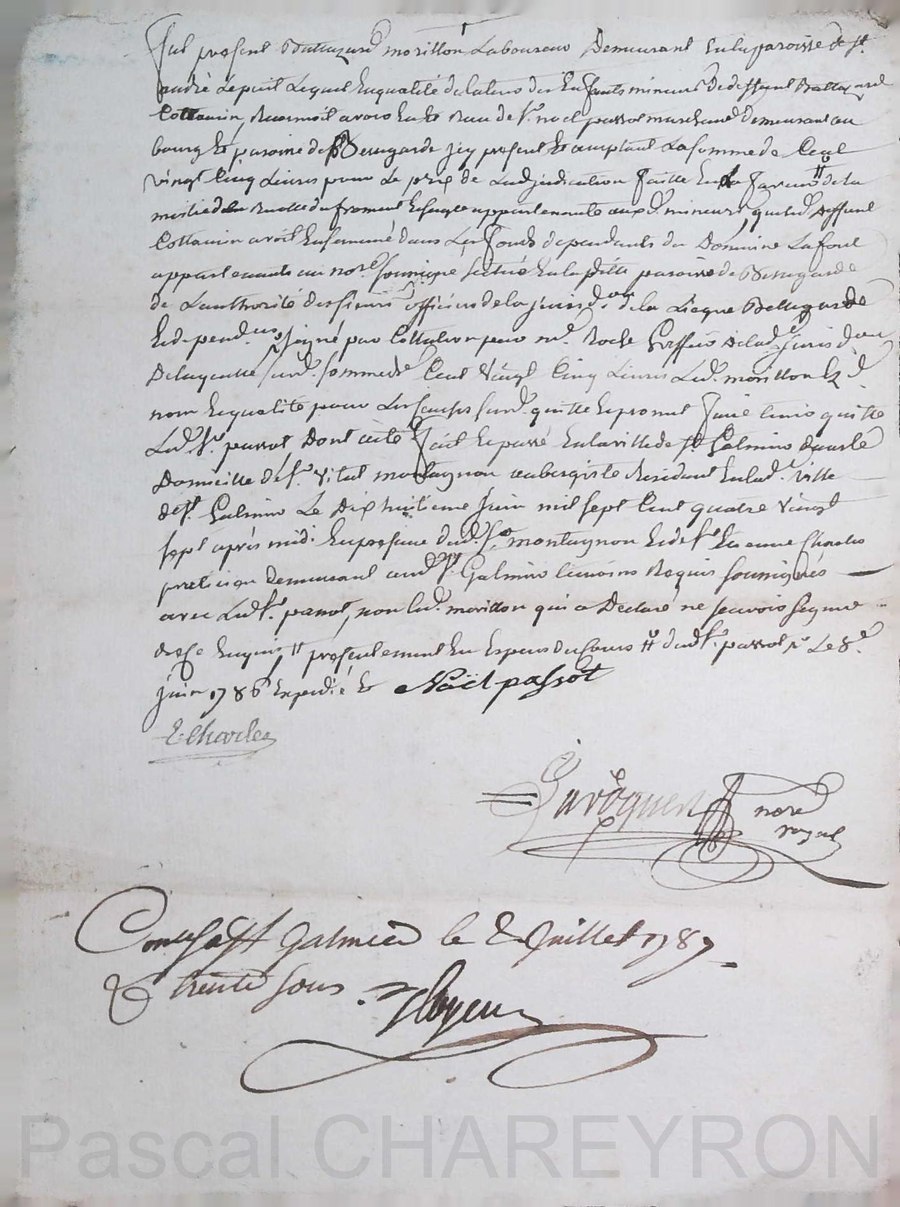 fut présent Baltazard morillon Laboureur Demeurant en la paroisse de st.
andré Le puit Lequel En qualité de tuteur des Enfants mineurs de deffunt Baltazard
Cottancin, Reconnoit avoir Eu et Reçu de Sr. noel passot marchand demeurant au
bourg Et paroisse de Bellegarde icy présent Et acceptant La somme de Cent
vingt Cinq Livres pour Le prix de Ladjudication faitte En sa faveur # de la
moitié du froment Et seigle appartenante auxd. mineurs, que led. deffunt
Cottancin avoit Ensemmencé dans Les fonds dependants du Domaine Lafont
appartenants au nore. soussigné scitué En la ditte paroisse de Bellegarde
de Lauthorité des sieurs officiers de la jurisdon. de la Bellegarde
Et dependces. signé par Collation pour md. Roche Greffier de lad. jurisdon
De laquelle susd. somme de Cent Vingt Cinq Livres Led. morillon Es d.
nom Et qualité pour Les causes susd. quitte Et promet faire tenir quitte
Led. Sr. passot, Dont acte fait Et passé En la ville de St. Galmier dans le
Domicille de Sr. Vital montagnon aubergiste Résident En lad. ville
de St. Galmier Le Dix huitieme juin mil sept Cent quatre vingt
sept après midi En présence dud. Sr. montagnon Et de Sr. Etienne Charles
praticien demeurant aud. St. Galmier témoins Requis soussignés
avec Led. Sr. passot, non led. morillon qui a Déclaré ne sçavoir signer
de ce Enquis, # présentement En Espèces du Cours # dud. Sr. passot Le 8e.
juin 1786 Expédié Et Noël passot
E. Charles
nore
royal
Conté a St Galmier le 2 Juillet 1787
trente sous
Pascal CHAREYRON